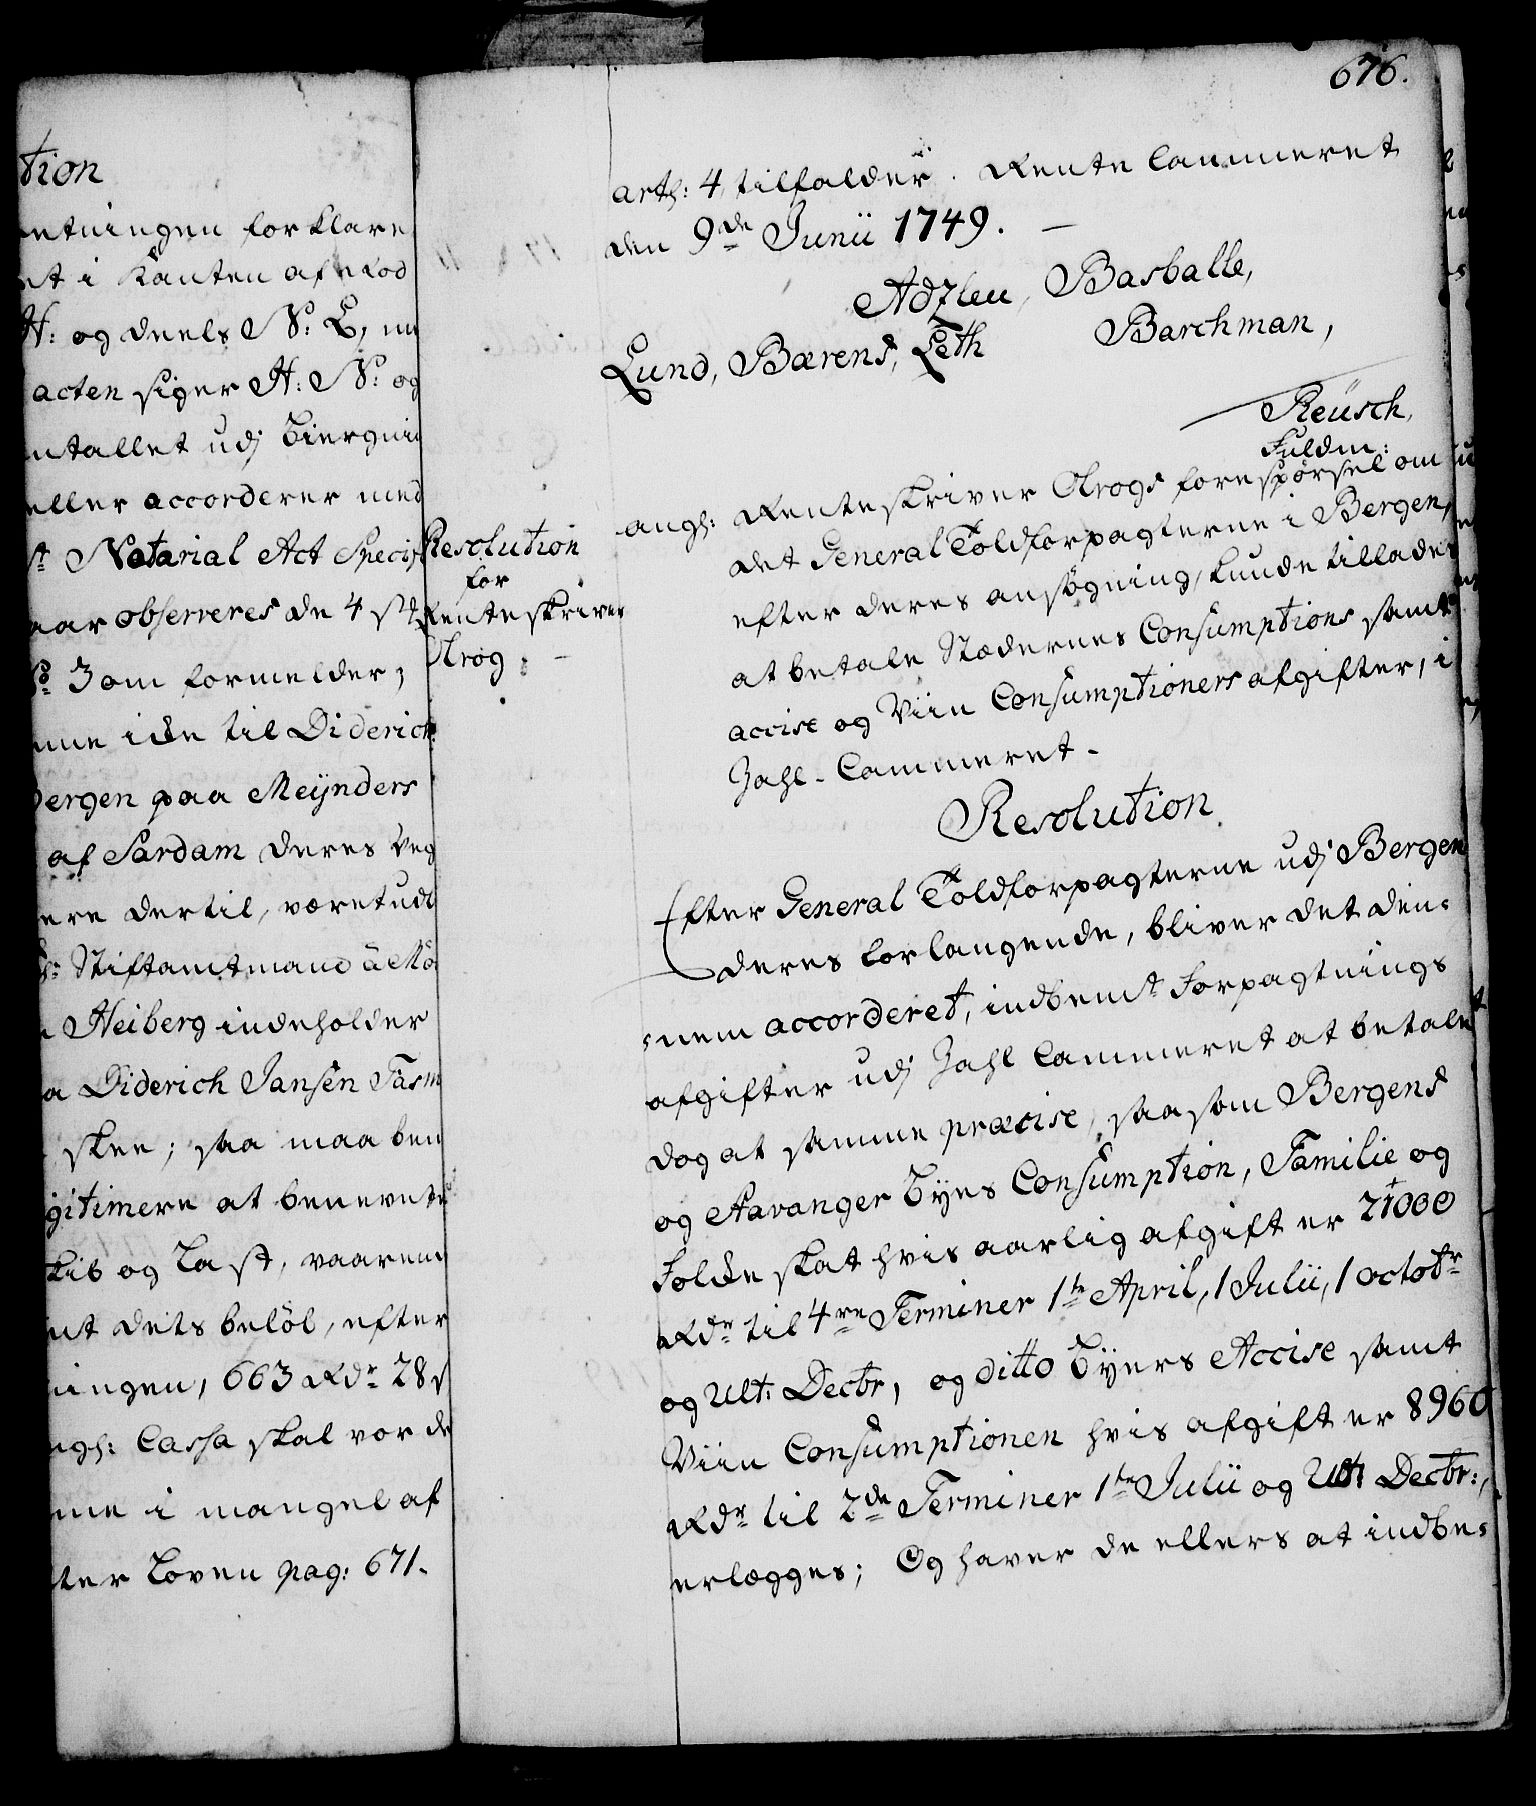 tion
retningen forklare
et i Kanten af Rod
H: og deels N: L, m
acten siger H: N: og
ntallet udj Biergnin
eller accorderer med
Notarial Act Speci
aar observeres de 4 st
3 om formelder;
me icke til Diderich
Bergen paa Meijnders
af Sardam deres veg
ere dertil, væretudt
Stiftamtmand
Heiberg indeholder
Diderich Jansen Tasm
skee; saa maa ben
gitimere at benevnte
kib og Last, vaaren
nt dets beløb, efter
ningen, 663 Rdr 28 s
Cassa skal vorde
me i mangel af
ter Loven pag: 671.
Resolution
for
Renteskriver
Krog.
676.
art: 4 tilfalder. Rente Cammeret
den 9de Junii 1749. —
Adzleu, Basballe,
Lund, Bærens, Leth Barchman,
Reüsch,
Fuldm:
angl: Renteskriver Krogs forespørsel om
det General Toldforpagterne i Bergen,
efter deres ansøgning, kunde tillades
at betale Stædernes Consumptions samt
accise og Viin Consumptioners afgifter, i
Zahl-Cammeret.
Resolution
Efter General Toldforpagterne udj Bergen
deres forlangende, bliver det den-
nem accorderet, indbemt Forpagtnings
afgifter udj Zahl Cammeret at betale
dog at samme præcise, saasom Bergens
og Stavanger Byes Consumption, Familie og
Folcke skat hvis aarlig afgift er 21000
Rdr til 4re Terminer 1te April, 1 Julii, 1 Octobr
og Ult: Decbr, og ditto Byers Accise samt
Viin Consumptionen hvis afgift er 8960
Rdr til 2de Terminer 1te Julii og Ult: Decbr:,
erlægges; Og haver de ellers at indbe-